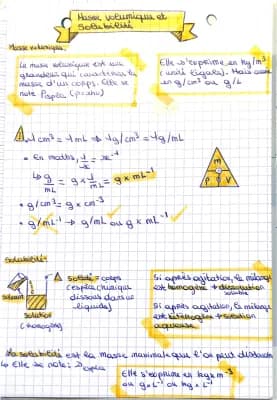 Masse volumique et
Solubilité
Masse volumique:
La masse volumique est une
grandeur qui caractérise la
masse d'un corps. Elle se
note
Elle s'exprime en kg/m³
(unité légale). Mais aussi
en g/cm³ ou g/L
1 cm³ = 1 mL ⇒ 1g/cm³ = 1g/mL
• En maths, 1/x = x⁻¹
↳ g/mL = g × 1/mL = g × mL⁻¹
m
ρ V
• g/cm³ = g × cm⁻³
• g/mL⁻¹ → g/mL ou g × mL⁻¹
Solubilité:
soluté = corps
(espèce chimique
dissous dans un
liquide)
solvant
Solution
(homogène)
Si après agitation, le mélange
est homogène →
soluble
Si après agitation, le mélange
est → solution
aqueuse
La solubilité est la masse maximale que l'on peut dissoudre
↳ Elle se note: s
Elle s'exprime en kg × m⁻³
ou g × L⁻¹ ou kg × L⁻¹